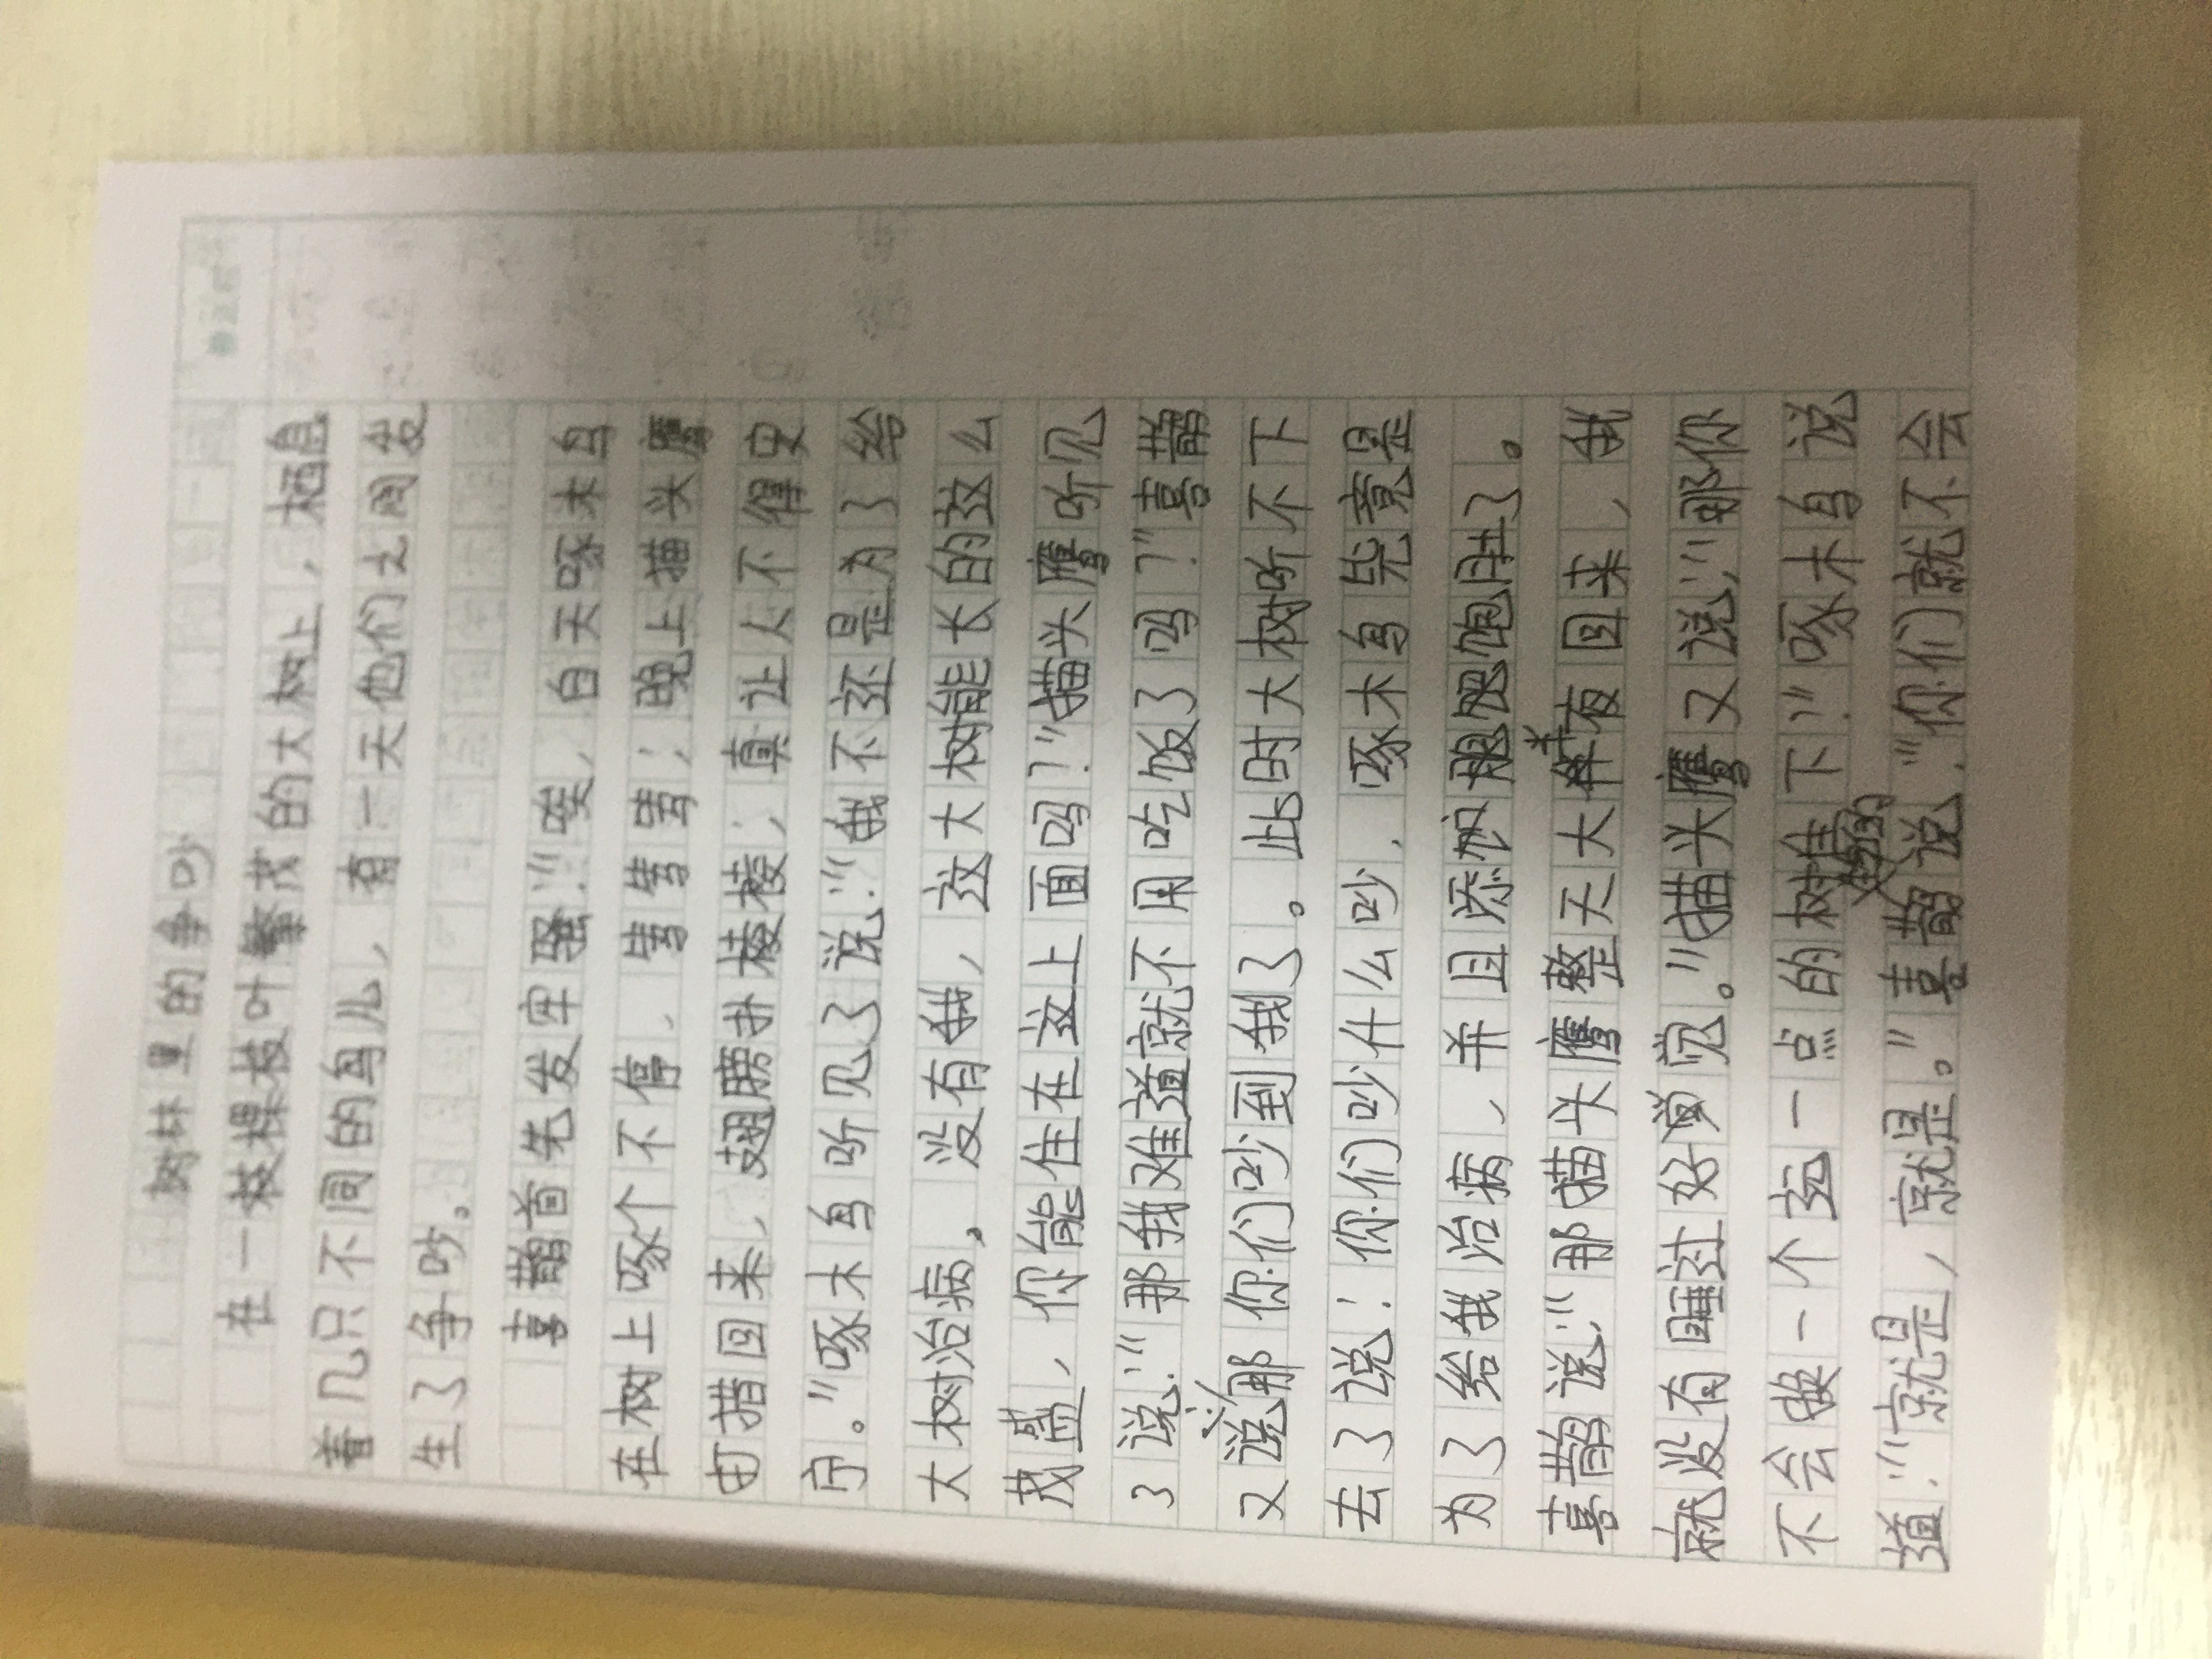 树林里的争吵
在一枝棵枝叶繁茂的大树上，栖息
着几只不同的鸟儿，有一天他们之间发
生了争吵。
喜鹊首先发牢骚：“唉，白天啄木鸟
在树上啄个不停，笃笃笃；晚上猫头鹰
打猎回来，翅膀扑棱棱，真让人不得安
宁。”啄木鸟听见了说：“我不还是为了给
大树治病。没有我，这大树能长的这么
茂盛，你能住在这上面吗？”猫头鹰听见
了说：“那我难道就不用吃饭了吗？”喜鹊
又说：那你们吵到我了。此时大树听不下
去了说：你们吵什么吵，啄木鸟毕竟是
为了给我治病，并且添加肥
喜鹊说：“那猫头鹰整天大半夜回来，我
就没有睡过好觉。”猫头鹰又说：“那你
不会换一个远一点的树
下！”啄木鸟说
道：“就是，就是。”喜鹊说，“你们就不会